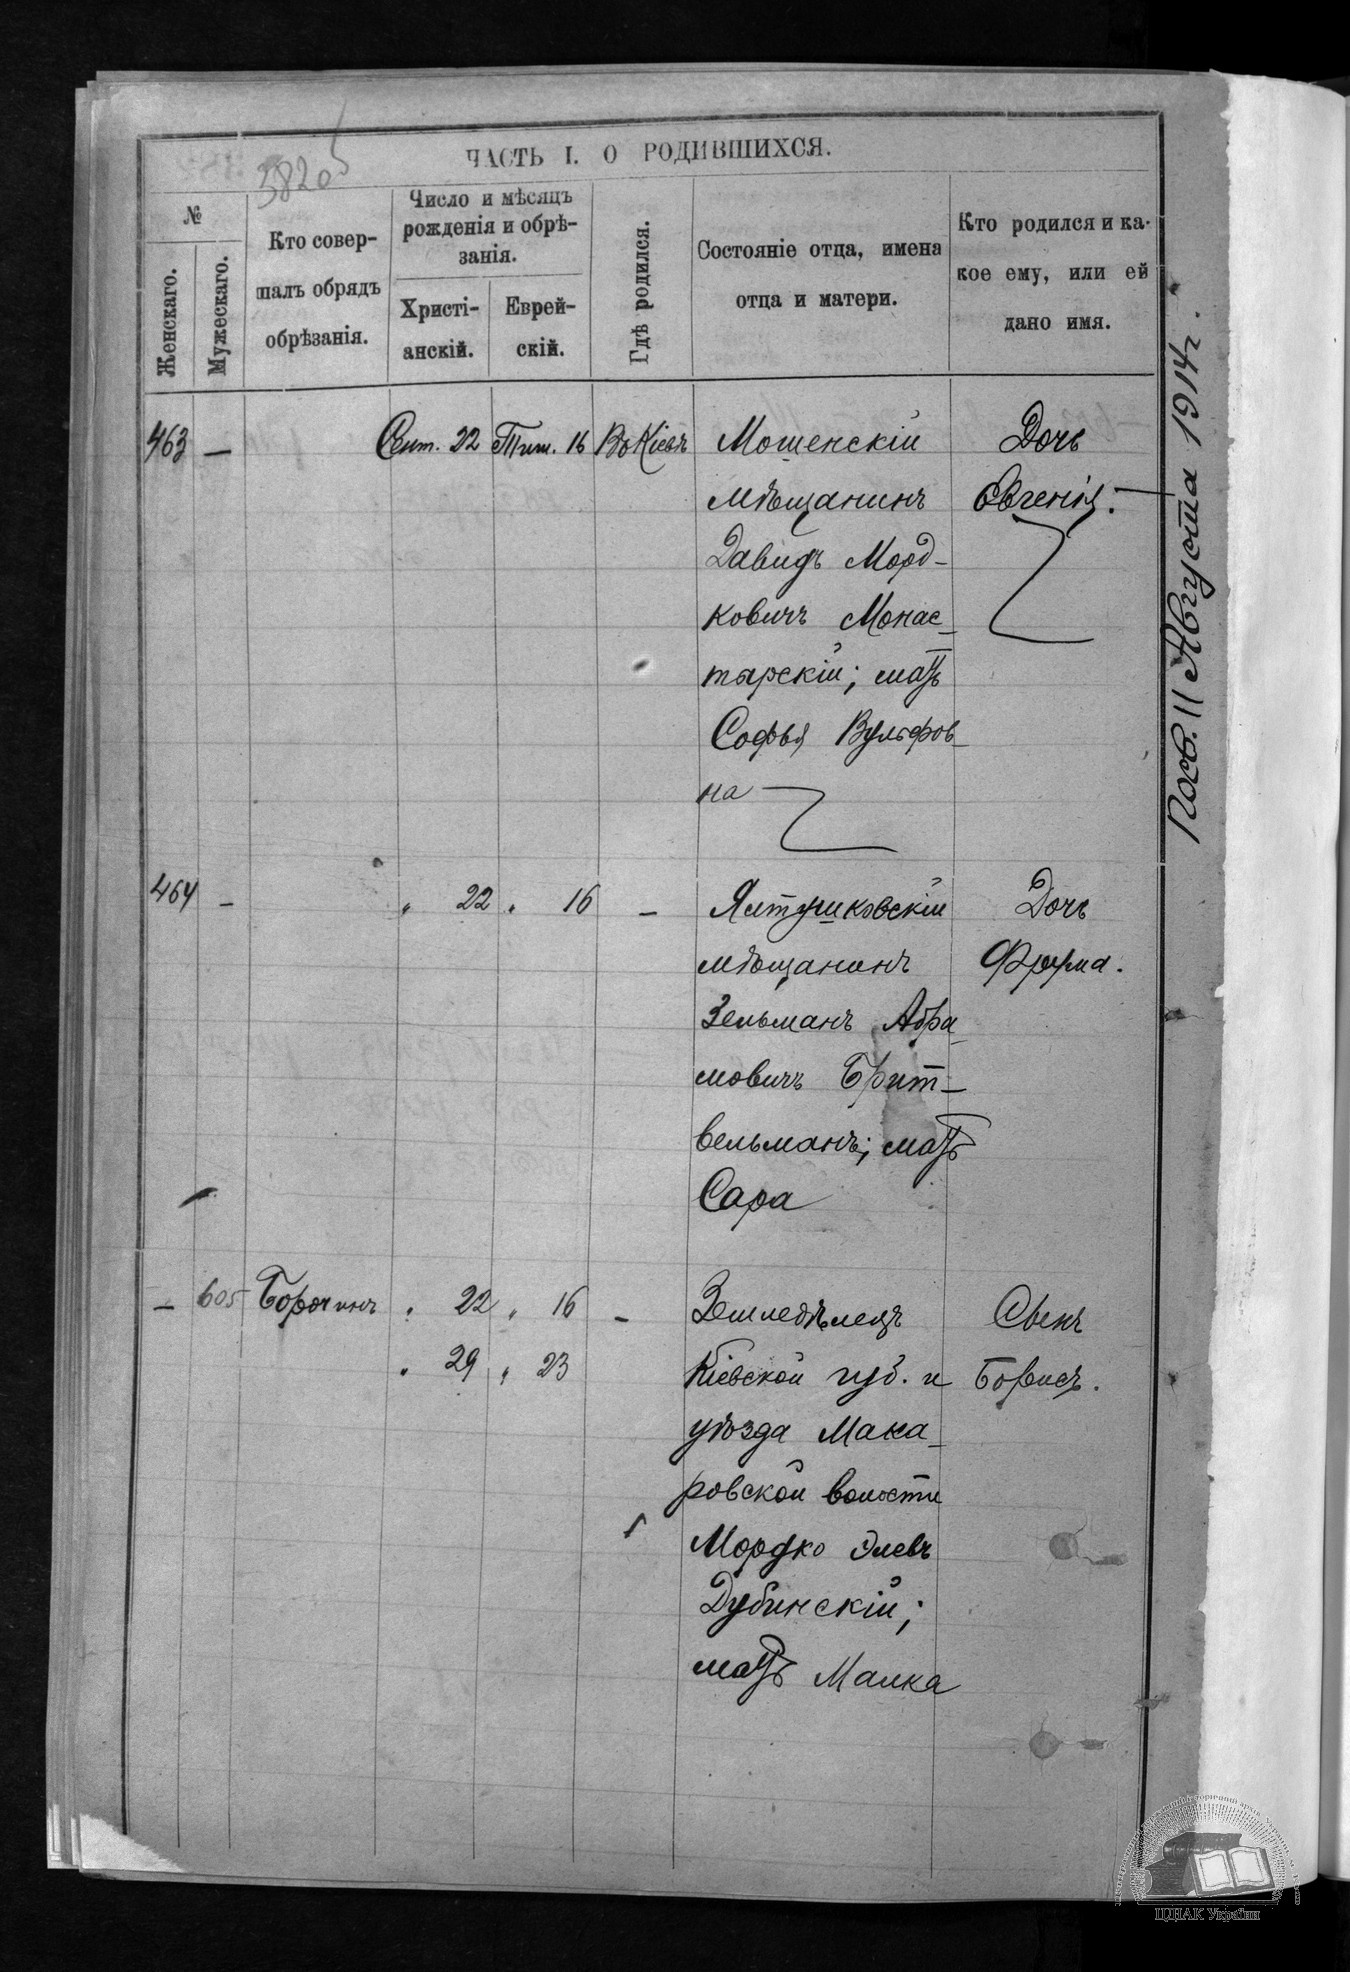 3820
ЧАСТЬ I. О РОДИВШИХСЯ.
№
Женскаго.
Мужескаго.
Кто совер-
шалъ обрядъ
обрѣзанія.
Число и мѣсяцъ
рожденія и обрѣ-
занія.
Христі-
анскій.
Еврей-
скій.
Гдѣ родился.
Состояніе отца, имена
отца и матери.
Кто родился и ка-
кое ему, или ей
дано имя.
463 — Сент. 22 Тиш. 16 Въ Кіевѣ Мошенскій Дочь
мѣщанинъ Евгенія.
Давидъ Морд-
ковичъ Монас-
тырскій; мать
Софья Вульфов-
на
464 — " 22 " 16 — Ялтушковскій Дочь
мѣщанинъ Фрума.
Зельманъ Абра-
мовичъ Брит-
вельманъ; мать
Сара
— 605 " 22 " 16 — Земледѣлецъ Сынъ
" 29 " 23 Кіевской губ. и Борисъ.
уѣзда Мака-
ровской волости
Мордко Элевъ
Дубинскій;
мать Малка
11 Августа 1914 г.
ЦДІАК України